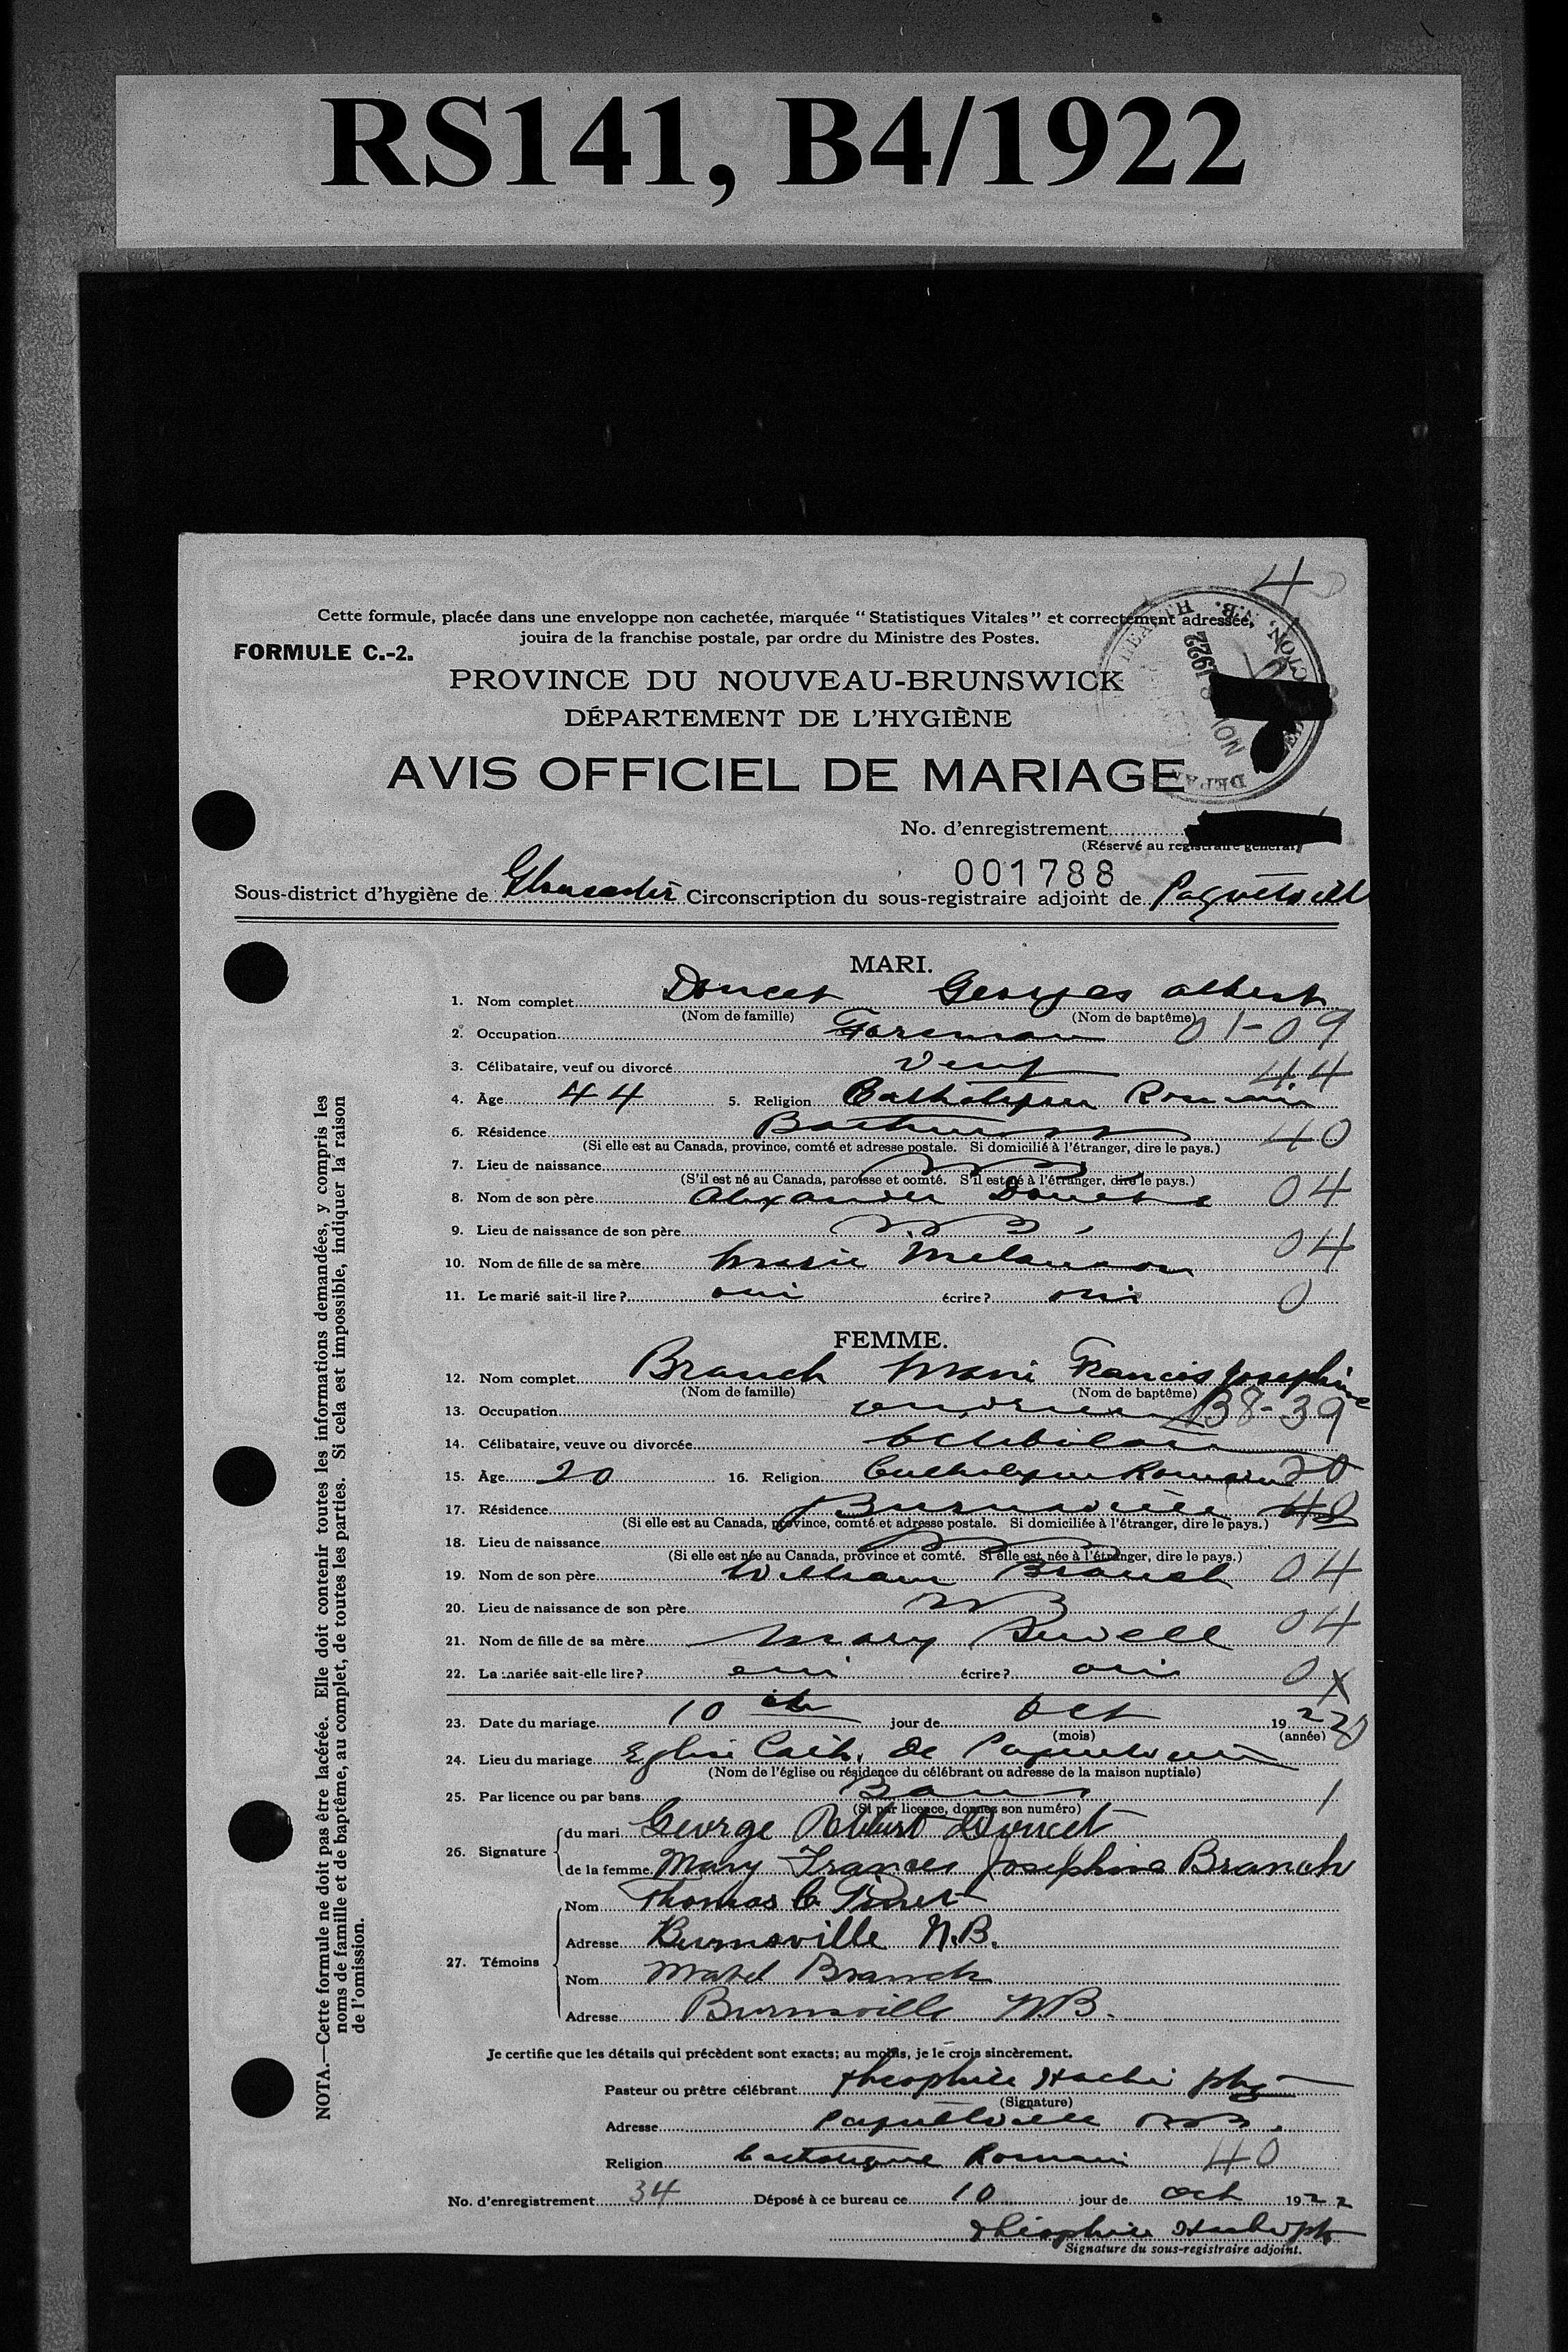 RS141, B4/1922
4
Cette formule, placée dans une enveloppe non cachetée, marquée “ Statistiques Vitales” et correctement adressée,
jouira de la franchise postale, par ordre du Ministre des Postes.
FORMULE C.-2.
PROVINCE DU NOUVEAU-BRUNSWICK
DÉPARTEMENT DE L'HYGIÈNE
AVIS OFFICIEL DE MARIAGE
No. d'enregistrement
(Réservé au registraire général)
001788
Sous-district d'hygiène de Gloucester Circonscription du sous-registraire adjoint de Paquetville
MARI.
1. Nom complet Doucet Georges Albert
(Nom de famille) (Nom de baptême)
2. Occupation Foreman 01-09
3. Célibataire, veuf ou divorcé Veuf 44
4. Âge 44 5. Religion Catholique Romain
6. Résidence Bathurst 40
(Si elle est au Canada, province, comté et adresse postale. Si domicilié à l'étranger, dire le pays.)
7. Lieu de naissance NB
(S'il est né au Canada, paroisse et comté. S'il est né à l'étranger, dire le pays.)
8. Nom de son père Alexander Doucet 04
9. Lieu de naissance de son père N.B.
10. Nom de fille de sa mère Marie Melanson 04
11. Le marié sait-il lire? oui écrire? oui 0
FEMME.
12. Nom complet Branch Marie Francis Josephine
(Nom de famille) (Nom de baptême)
13. Occupation B8-39
14. Célibataire, veuve ou divorcée Celibataire
15. Âge 20 16. Religion Catholique Romain 20
17. Résidence Burnsville 40
(Si elle est au Canada, province, comté et adresse postale. Si domiciliée à l'étranger, dire le pays.)
18. Lieu de naissance NB
(Si elle est née au Canada, province et comté. Si elle est née à l'étranger, dire le pays.)
19. Nom de son père William Branch 04
20. Lieu de naissance de son père NB
21. Nom de fille de sa mère Mary Sewell 04
22. La mariée sait-elle lire? oui écrire? oui 0 X
23. Date du mariage 10 jour de Oct 1922
(mois) (année)
24. Lieu du mariage Eglise Cath. de Paquetville
(Nom de l'église ou résidence du célébrant ou adresse de la maison nuptiale)
25. Par licence ou par bans Bans 1
(Si par licence, donnez son numéro)
26. Signature du mari George Albert Doucet
de la femme Mary Frances Josephine Branch
27. Témoins Nom Thomas C. Pinet
Adresse Burnsville N.B.
Nom Mabel Branch
Adresse Burnsville N.B.
Je certifie que les détails qui précèdent sont exacts; au moins, je le crois sincèrement.
Pasteur ou prêtre célébrant Theophile Haché ptre
(Signature)
Adresse Paquetville NB.
Religion Catholique Romain 40
No. d'enregistrement 34 Déposé à ce bureau ce 10 jour de Oct 1922
Théophile Haché ptr
Signature du sous-registraire adjoint.
NOTA.—Cette formule ne doit pas être lacérée. Elle doit contenir toutes les informations demandées, y compris les
noms de famille et de baptême, au complet, de toutes les parties. Si cela est impossible, indiquer la raison
de l'omission.